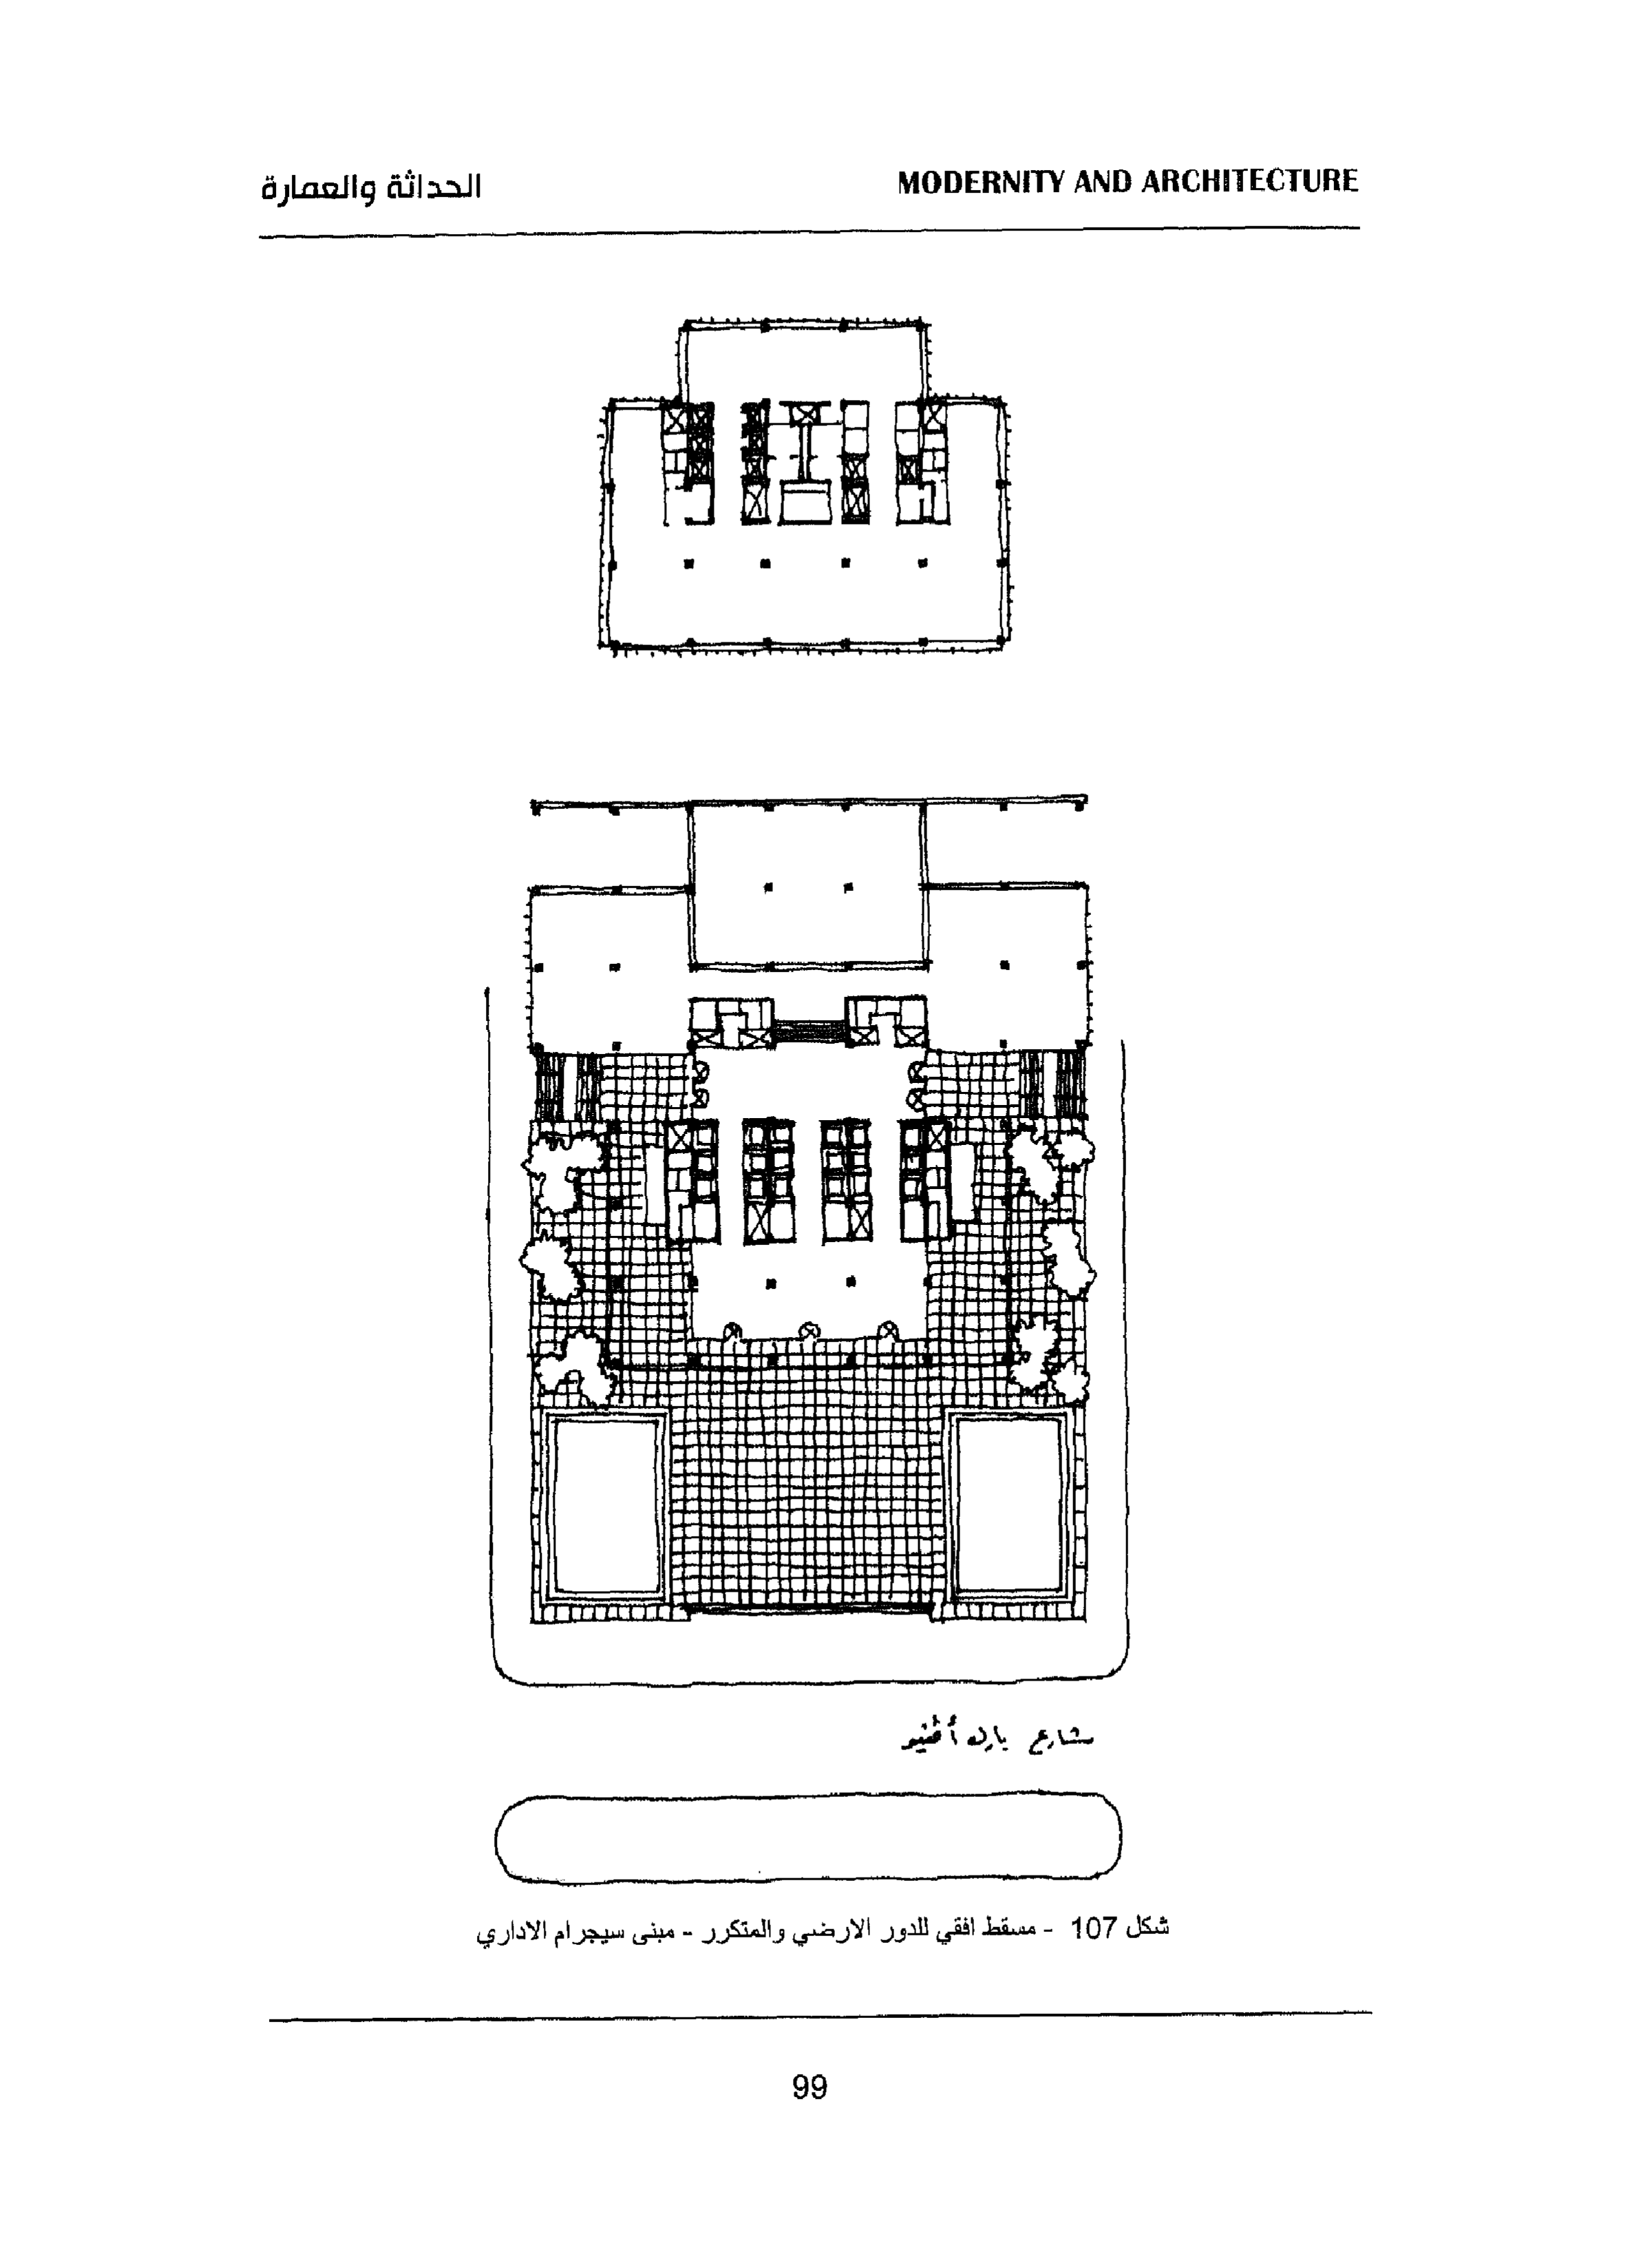 الحداثة والعمارة
MODERNITY AND ARCHITECTURE
شارع بارك أڤنيو
شكل 107 - مسقط افقي للدور الارضي والمتكرر - مبنى سيجرام الاداري
99